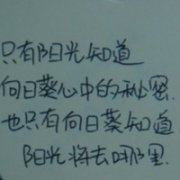 只有阳光知道
向日葵心中的秘密.
也只有向日葵知道
阳光将去哪里.